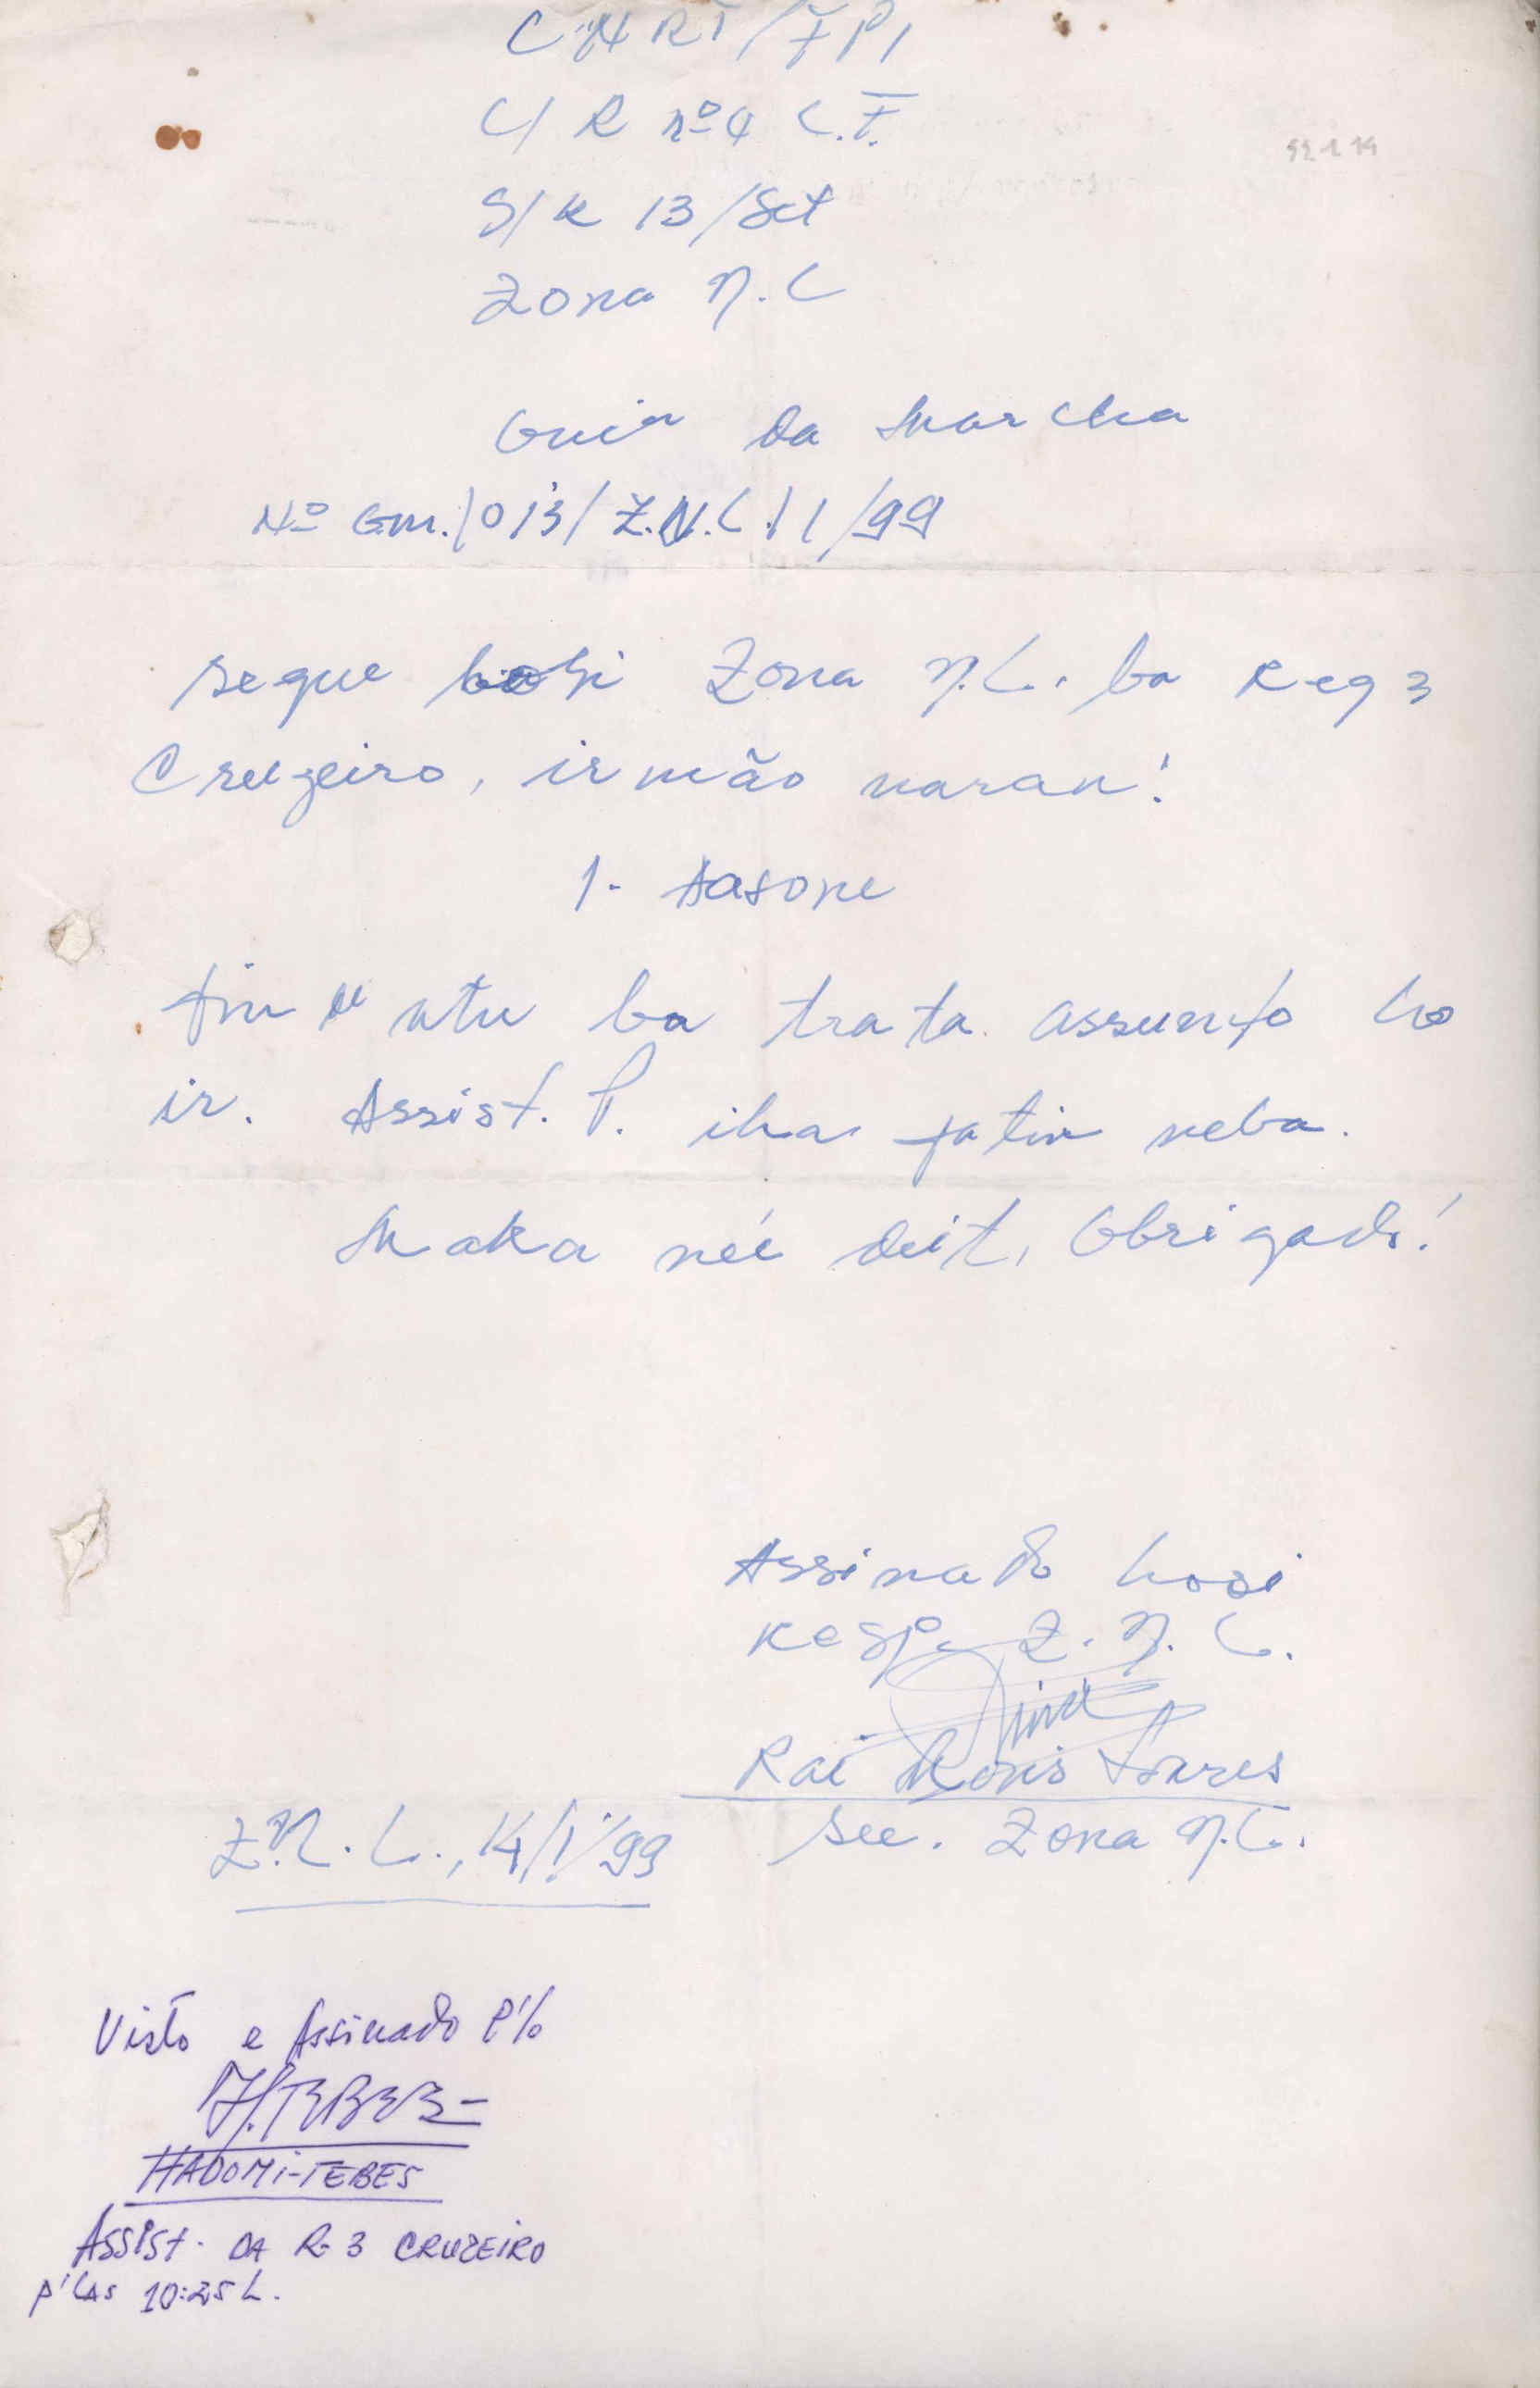 CNRT/FPI
C/R nº 4 L.F.
S/R 13/Set
Zona N.C
Guia da Marcha
Nº Gm./013/Z.N.C./1/99
Segue hosi Zona N.C. ba Reg 3
Cruzeiro, irmão naran:
1. Asasone
Fin atu ba trata assunto ho
ir. Assist. P. iha fatin neba.
Maka né'e deit, Obrigado!
Assinado hosi
Resp. Z.N.C.
Rai Soares
Sec. Zona N.C.
Z.N.C., 14/1/99
Visto e Assinado P'lo
H.TEBES
HADOMI-TEBES
Assist. DA R-3 CRUZEIRO
P'las 10:25 h.